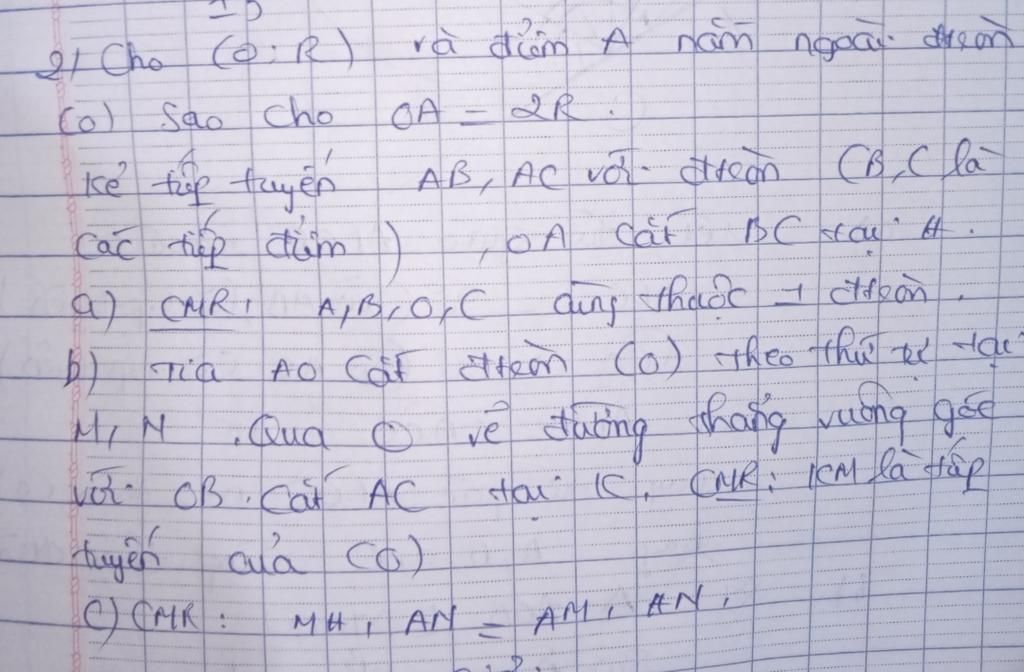 2) Cho (O;R) và điểm A nằm ngoài đtròn
(O) sao cho OA = 2R.
Kẻ tiếp tuyến AB, AC với đtròn (B,C là
các tiếp điểm), OA cắt BC tại H.
a) CMR: A,B,O,C cùng thuộc 1 đtròn.
b) Tia AO cắt đtròn (O) theo thứ tự tại
M, N. Qua O vẽ đường thẳng vuông góc
với OB. Cắt AC tại K. CMR: KM là tiếp
tuyến của (O)
c) CMR: MH. AN = AM. HN.